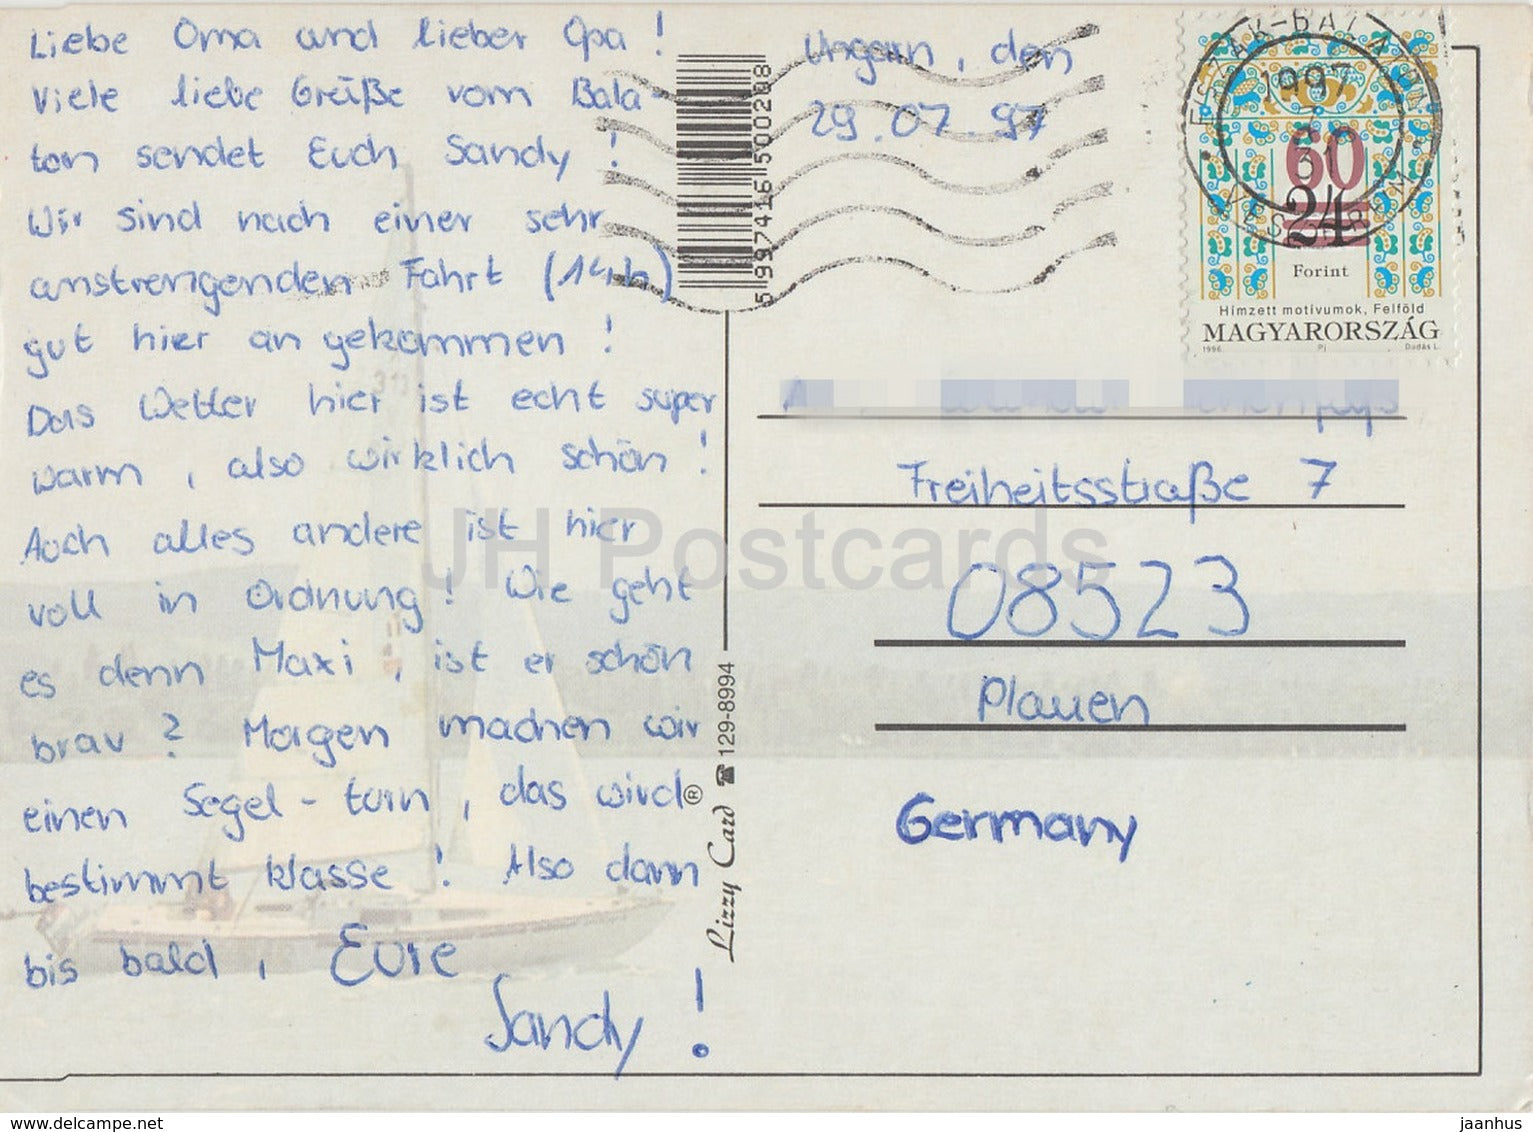 Liebe Oma und lieber Opa !
Viele liebe Grüße vom Bala-
ton sendet Euch Sandy !
Wir sind nach einer sehr
anstrengenden Fahrt (14h)
gut hier an gekommen !
Das Wetter hier ist echt super
warm, also wirklich schön !
Auch alles andere ist hier
voll in Ordnung ! Wie geht
es denn Maxi, ist er schön
brav ? Morgen machen wir
einen Segel-torn, das wird
bestimmt klasse ! Also dann
bis bald, Eure
Sandy !
5 997416 500288
129-8994
Lizzy Card ®
Ungarn, den
29.07.97
1997
31
VESZPRÉM
60
24
Forint
Hímzett motívumok, Felföld
MAGYARORSZÁG
1996 Pj Dudás L.
Freiheitsstraße 7
08523
Plauen
Germany
JH Postcards
www.delcampe.net
jaanhus